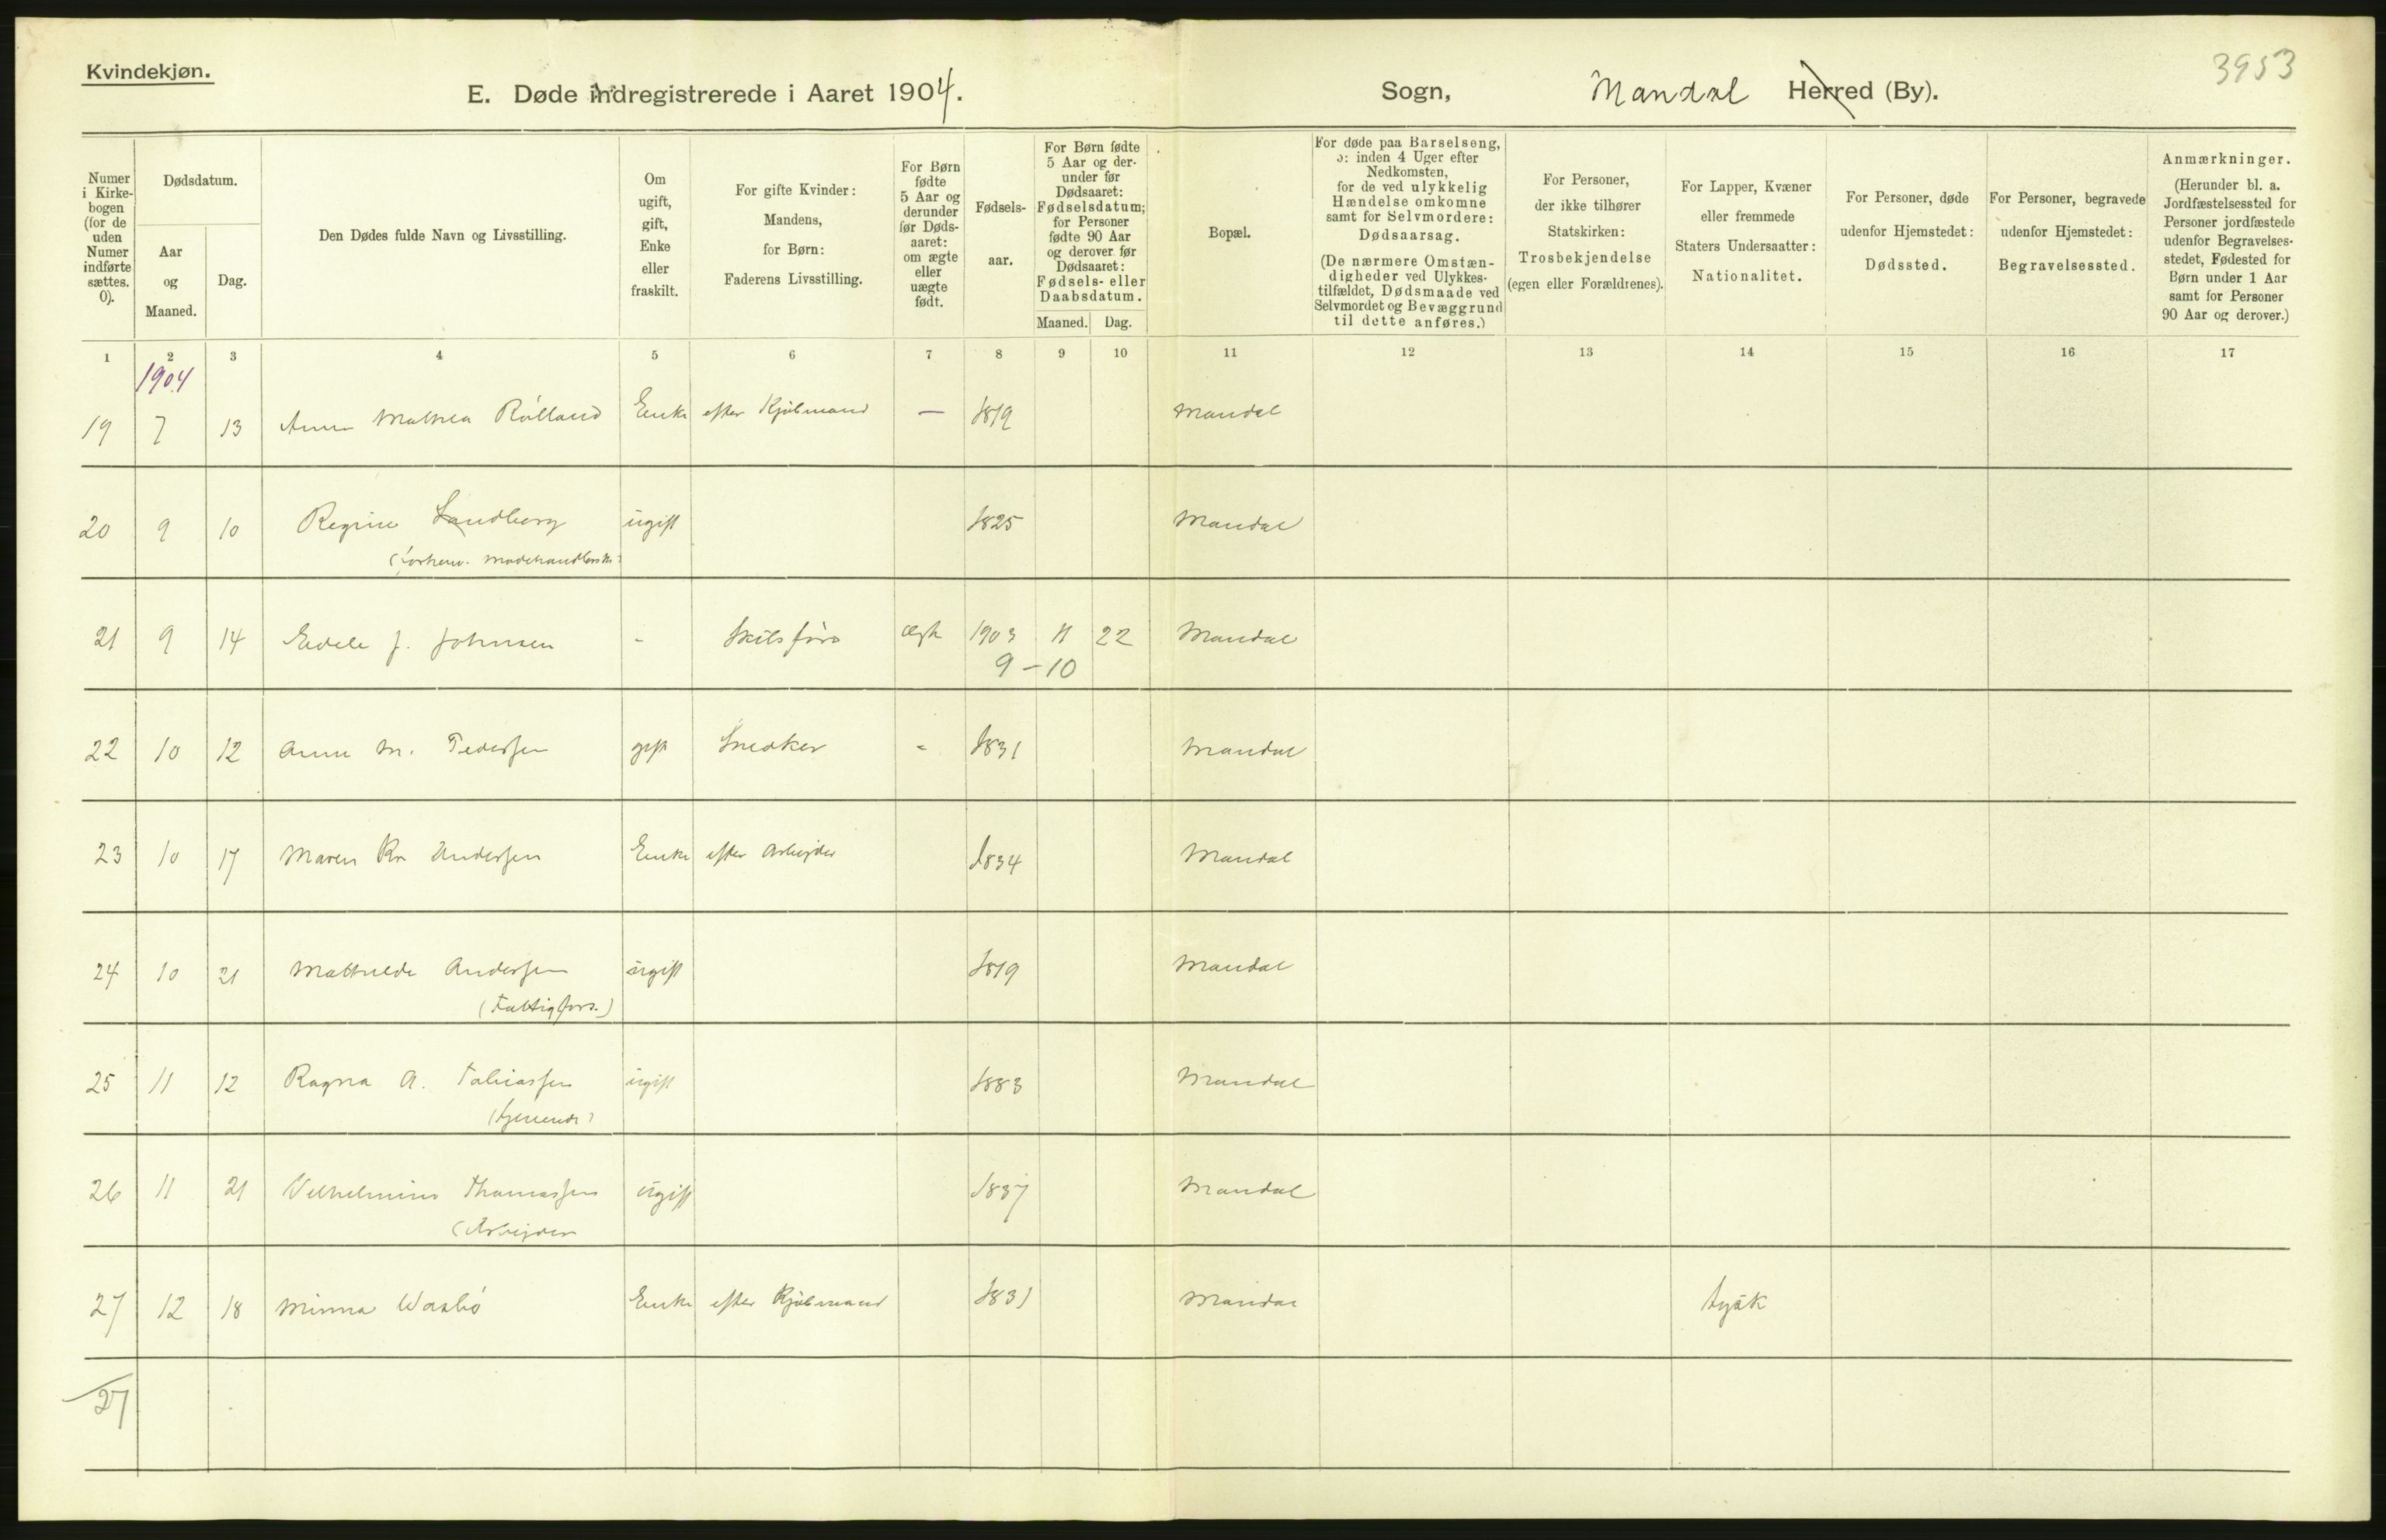 Kvindekjøn.
3953
E. Døde indregistrerede i Aaret 1904. Sogn, Mandal Herred (By).
Numer i Kirke-bogen (for de uden Numer indførte sættes. 0).
Dødsdatum.
Aar og Maaned.
Dag.
Den Dødes fulde Navn og Livsstilling.
Om ugift, gift, Enke eller fraskilt.
For gifte Kvinder: Mandens, for Børn: Faderens Livsstilling.
For Børn fødte 5 Aar og derunder før Døds-aaret: om ægte eller uægte født.
Fødsels-aar.
For Børn fødte 5 Aar og der-under før Dødsaaret: Fødselsdatum; for Personer fødte 90 Aar og derover før Dødsaaret: Fødsels- eller Daabsdatum.
Maaned. Dag.
Bopæl.
For døde paa Barselseng, ɔ: inden 4 Uger efter Nedkomsten, for de ved ulykkelig Hændelse omkomne samt for Selvmordere: Dødsaarsag. (De nærmere Omstæn-digheder ved Ulykkes-tilfældet, Dødsmaade ved Selvmordet og Bevæggrund til dette anføres.)
For Personer, der ikke tilhører Statskirken: Trosbekjendelse (egen eller Forældrenes).
For Lapper, Kvæner eller fremmede Staters Undersaatter: Nationalitet.
For Personer, døde udenfor Hjemstedet: Dødssted.
For Personer, begravede udenfor Hjemstedet: Begravelsessted.
Anmærkninger. (Herunder bl. a. Jordfæstelsessted for Personer jordfæstede udenfor Begravelses-stedet, Fødested for Børn under 1 Aar samt for Personer 90 Aar og derover.)
1 2 3 4 5 6 7 8 9 10 11 12 13 14 15 16 17
1904
19 7 13 Anna Mathea Rölland Enke efter Kjöbmand — 1819 Mandal
20 9 10 Regine Sandberg ugift 1825 Mandal
(forhenv. Modehandlerske)
21 9 14 Edele J. Johnsen - Skibsfører ægte 1903 11 22 Mandal
9 - 10
22 10 12 Anne M. Pedersen gift Snedker - 1831 Mandal
23 10 17 Maren Kr. Andersen Enke efter Arbejder 1834 Mandal
24 10 21 Mathilde Andersen ugift 1819 Mandal
(Fattigfors.)
25 11 12 Ragna A. Tobiassen ugift 1883 Mandal
(tjenende)
26 11 21 Vilhelmine Thomassen ugift 1837 Mandal
(Arbejder
27 12 18 Minna Waxbö Enke efter Kjöbmand 1831 Mandal tysk
27